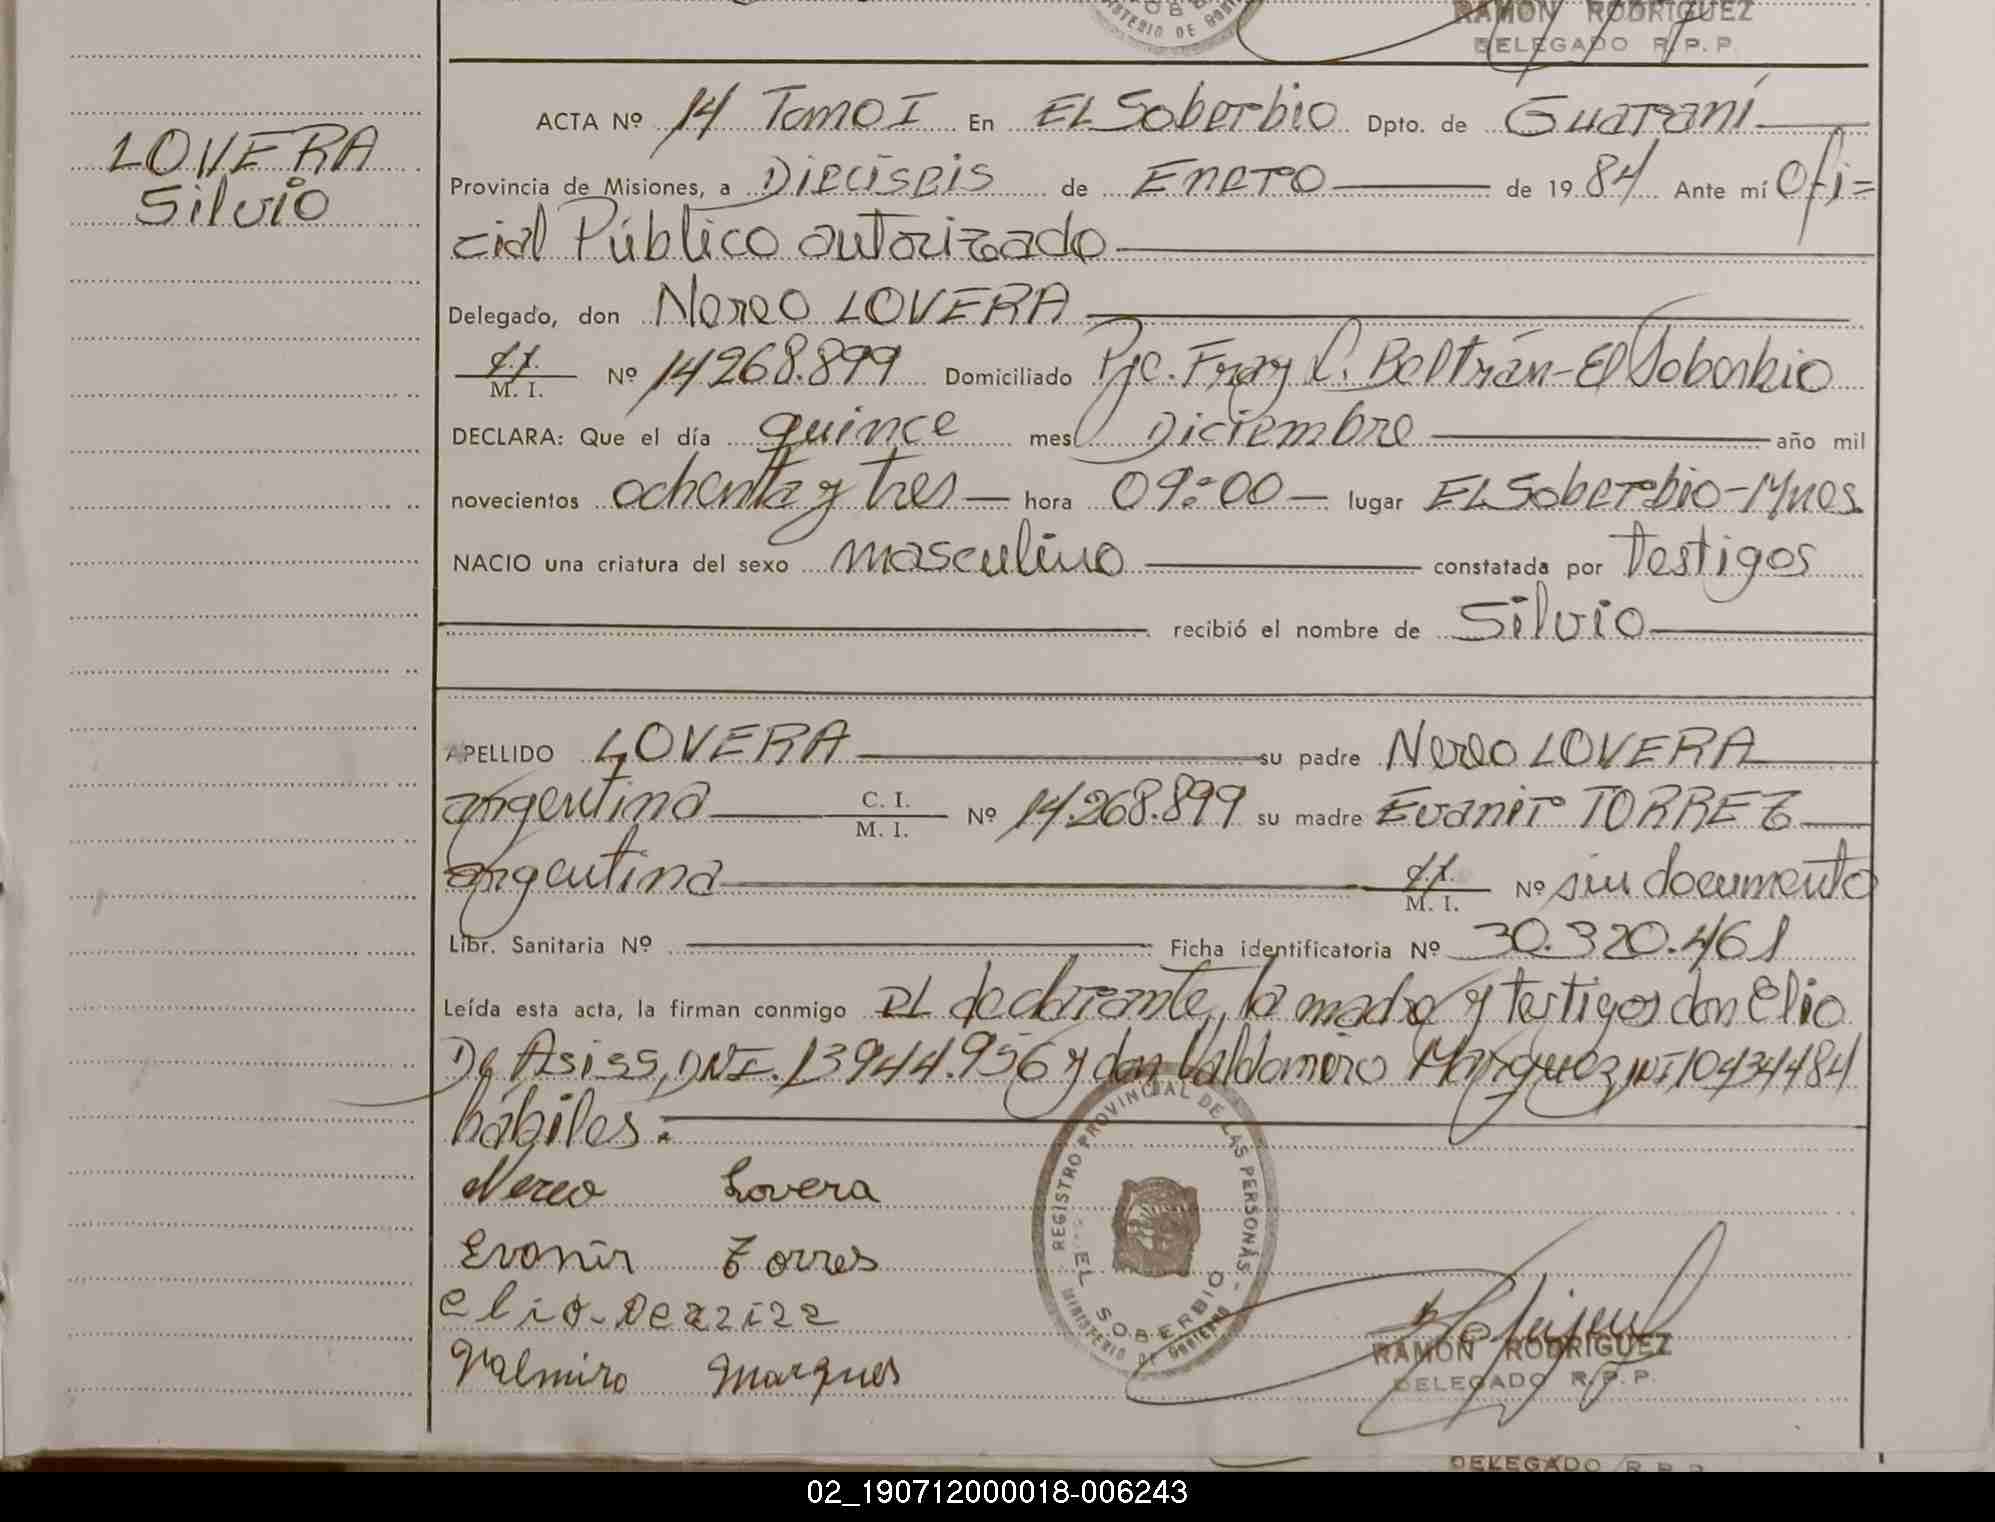 RAMON RODRIGUEZ
DELEGADO R.P.P.
LOVERA
Silvio
ACTA Nº 14 Tomo I En EL Soberbio Dpto. de Guaraní
Provincia de Misiones, a Dieciseis de Enero de 19 84 Ante mí Ofi=
cial Público autorizado
Delegado, don Nereo LOVERA
C.I. M. I. Nº 14268.899 Domiciliado Pje. Fray L. Beltrán-El Soberbio
DECLARA: Que el día quince mes Diciembre año mil
novecientos ochenta y tres hora 09:00 lugar EL Soberbio-Mnes
NACIO una criatura del sexo masculino constatada por testigos
recibió el nombre de Silvio
APELLIDO LOVERA su padre Nereo LOVERA
argentina C. I. M. I. Nº 14.268.899 su madre Evanir TORREZ
argentina C.I. M. I. Nº sin documento
Libr. Sanitaria Nº Ficha identificatoria Nº 30.320.461
Leída esta acta, la firman conmigo EL declarante, la madre y testigos don Elio
De Asiss, DNI. 13944.956 y don Valdomiro Marquez, DNI 10434484
hábiles.
Nereo Lovera
Evanir Torres
elio-Deazizz
Valmiro Marques
REGISTRO PROVINCIAL DE LAS PERSONAS -
EL SOBERBIO
MINISTERIO DE GOBIERNO
RAMON RODRIGUEZ
DELEGADO R.P.P.
DELEGADO R.P.P.
02_190712000018-006243